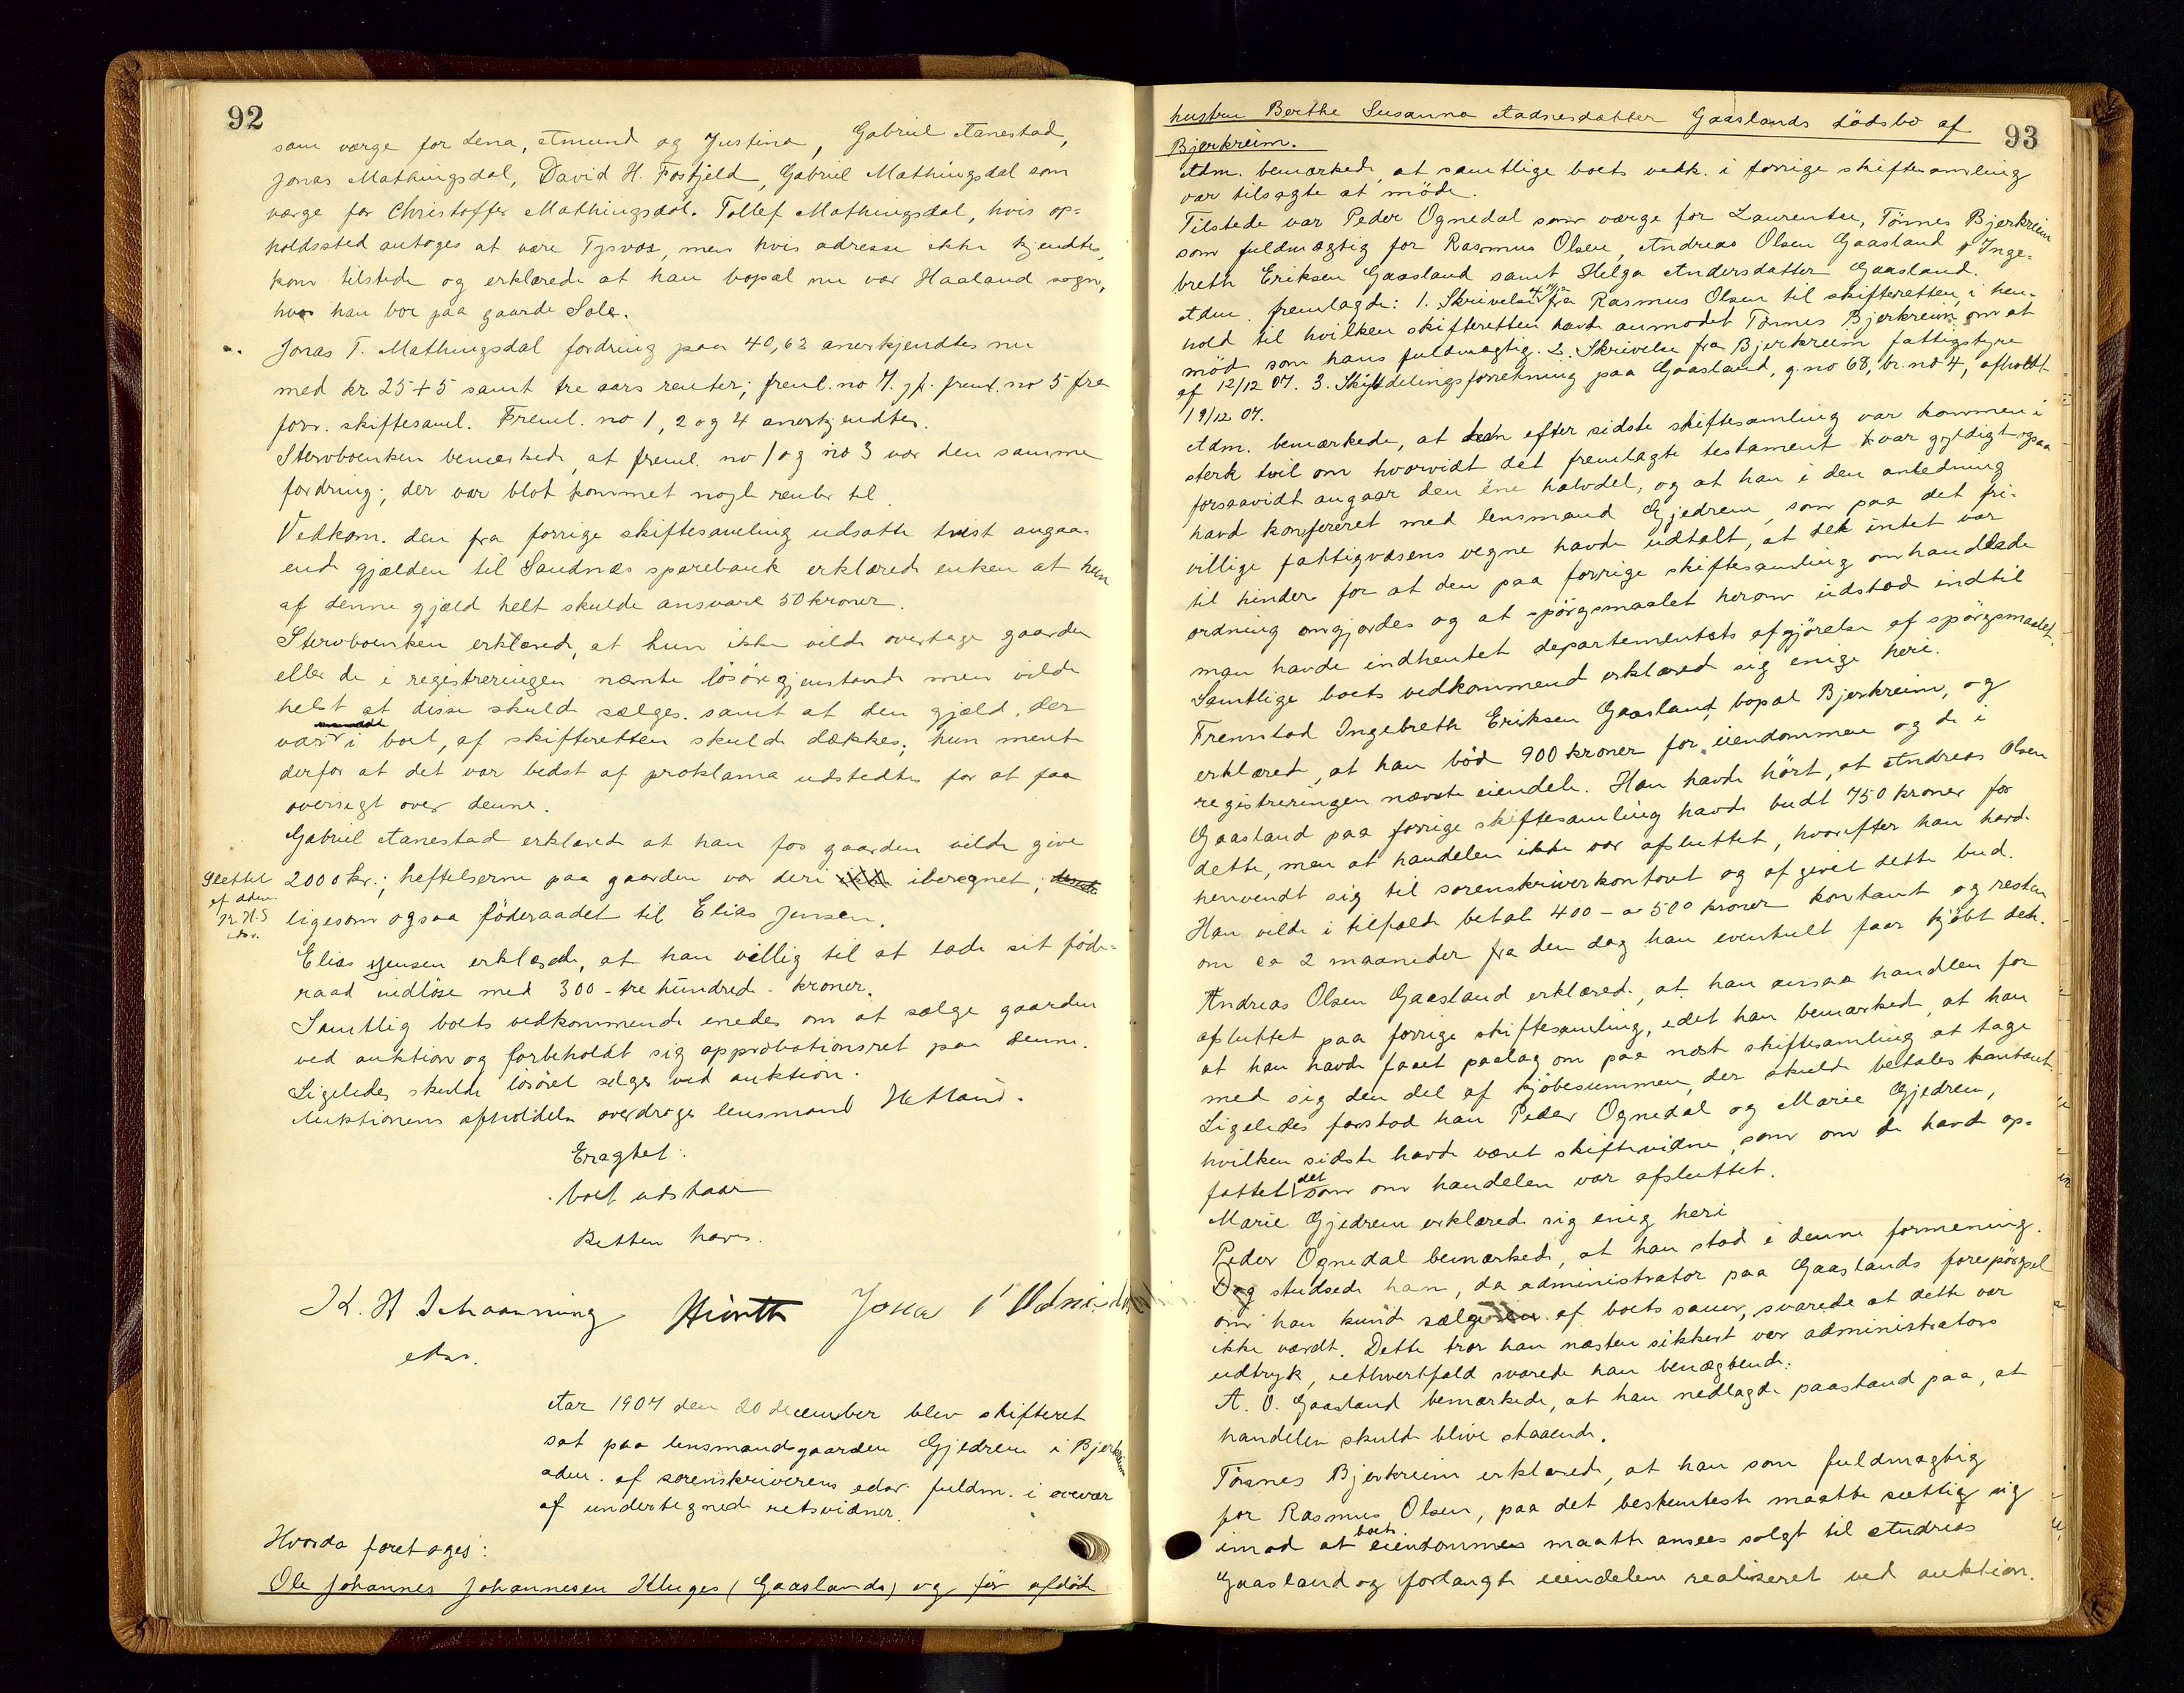 92
som værge for Lena, Amund og Justina, Gabriel Aanestad,
Jonas Mathingsdal, David H. Fosfjeld, Gabriel Mathingsdal som
værge for Christoffer Mathingsdal. Tollef Mathingsdal, hvis op-
holdssted antoges at være Tysvær, men hvis adresse ikke kjendtes,
kom tilstede og erklærede at han bopæl nu var Haaland sogn,
hvor han bor paa gaarde Sole.
Jonas T. Mathingsdal fordring paa 40,62 anerkjendtes nu
med kr 25+5 samt tre aars renter; freml. no 7. jf. freml. no 5 fra
forr. skiftesaml. Freml. no 1, 2 og 4 anerkjendtes.
Stervboenken bemerkede, at freml. no 1 og no 3 var den samme
fordring; der var blot kommet nogle renter til.
Vedkom. den fra forrige skiftesamling udsatte tvist angaa-
ende gjælden til Sandnæs sparebank erklærede enken at hun
af denne gjæld helt skulde ansvare 50 kroner.
Stervboenken erklærede, at hun ikke vilde overtage gaarden
eller de i registreringen nævnte lösöregjenstande men vilde
helst at disse skulde sælges. samt at den gjæld, der
var i boet, af skifteretten skulde dækkes; hun mente
derfor at det var bedst af proklama udstedtes for at faa
oversigt over denne.
Gabriel Aanestad erklærede at han for gaarden vilde give
Slettet
af adm.
K. H. S
edsv.
2000 kr.; heftelserne paa gaarden var deri iberegnet;
ligesom ogsaa föderaadet til Elias Jensen.
Elias Jensen erklærede, at han villig til at lade sit föde-
raad indlöse med 300 - tre hundrede - kroner.
Samtlig boets vedkommende enedes om at sælge gaarden
ved auktion og forbeholdt sig approbationsret paa denne.
Ligeledes skulde lösöret selges ved auktion.
Auktionens afholdelse overdroges lensmand Hetland.
Eragtet:
boet udstaar
Retten hævet.
K. H Schaanning Hiorth Jonas
edsv.
Aar 1907 den 20 december blev skifteret
sat paa lensmandsgaarden Gjedrem i Bjerkreim
adm. af sorenskriverens edsv. fuldm. i overvær
af undertegnede retsvidner.
Hvorda foretages:
Ole Johannes Johannesen Kluges (Gaaslands) og før afdöde
93
hustru Berthe Susanna Aadnesdatter Gaaslands dödsbo af
Bjerkreim.
Adm. bemærkede, at samtlige boets vedk. i forrige skiftesamling
var tilsagte at möde.
Tilstede var Peder Ognedal som værge for Laurentse, Tönnes Bjerkreim
som fuldmægtig for Rasmus Olsen, Andreas Olsen Gaasland, Inge-
breth Eriksen Gaasland samt Helga Andersdatter Gaasland.
Adm. fremlagde: 1. Skrivelse fra Rasmus Olsen til skifteretten, i hen-
hold til hvilken skifteretten havde anmodet Tönnes Bjerkreim om at
möde som hans fuldmægtig. 2. Skrivelse fra Bjerkreim fattigstyre
af 12/12 07. 3. Skyldelingsforretning paa Gaasland, g.no 68, br.no 4, afholdt
19/12 07.
Adm. bemærkede, at han efter sidste skiftesamling var kommen i
sterk tvil om hvorvidt det fremlagte testament var gyldigt ogsaa
forsaavidt angaar den ene halvdel, og at han i den anledning
havde konfereret med lensmand Gjedrem, som paa det fri-
villige fattigvæsens vegne havde udtalt, at det intet var
til hinder for at den paa forrige skiftesamling omhandlede
ordning omgjordes og at spörgsmaalet herom udstod indtil
man havde indhentet departementets afgjörelse af spörgsmaalet.
Samtlige boets vedkommende erklærede sig enige heri.
Fremstod Ingebreth Eriksen Gaasland, bopæl Bjerkreim, og
erklærede, at han böd 900 kroner for eiendommen og de i
registreringen nævnte eiendele. Han havde hört, at Andreas Olsen
Gaasland paa forrige skiftesamling havde budt 750 kroner for
dette, men at handelen ikke var afsluttet, hvorefter han havde
henvendt sig til sorenskriverkontoret og afgivet dette bud.
Han vilde i tilfælde betale 400 - a 500 kroner kontant og resten
om ca 2 maaneder fra den dag han eventuelt faar kjöbt det.
Andreas Olsen Gaasland erklærede, at han ansaa handlen for
afsluttet paa forrige skiftesamling, idet han bemærkede, at han
at han havde faaet paalæg om paa næste skiftesamling at tage
med sig den del af kjöbesummen, der skulde betales kontant.
Ligeledes forstod han Peder Ognedal og Marie Gjedrem,
hvilken sidste havde været skiftevidne, som om de havde op-
fattet det som om handelen var afsluttet.
Marie Gjedrem erklærede sig enig heri
Peder Ognedal bemærkede, at han stod i denne formening.
Dog studsede han, da administrator paa Gaaslands forespörgsel
om han kunde sælge af boets sauer, svarede at dette var
ikke værdt. Dette tror han næsten sikkert var administrators
udtryk, iethvertfald svarede han benægtende.
A. O. Gaasland bemærkede, at han nedlagde paastand paa, at
handelen skulde blive staaende.
Tönnes Bjerkreim erklærede, at han som fuldmægtig
for Rasmus Olsen, paa det bestemteste maatte sættig sig
imod at boets eiendommes maatte ansees solgt til Andreas
Gaasland og forlangte eiendelene realiseret ved auktion.